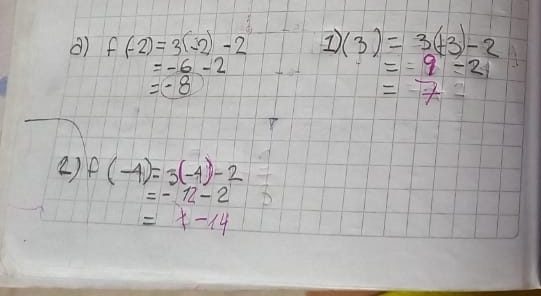 a) f(-2) = 3(-2) - 2
= -6 - 2
= -8
1) (3) = 3(+3) - 2
= 9 - 2
= 7
2) f(-4) = 3(-4) - 2
= - 12 - 2
= -14